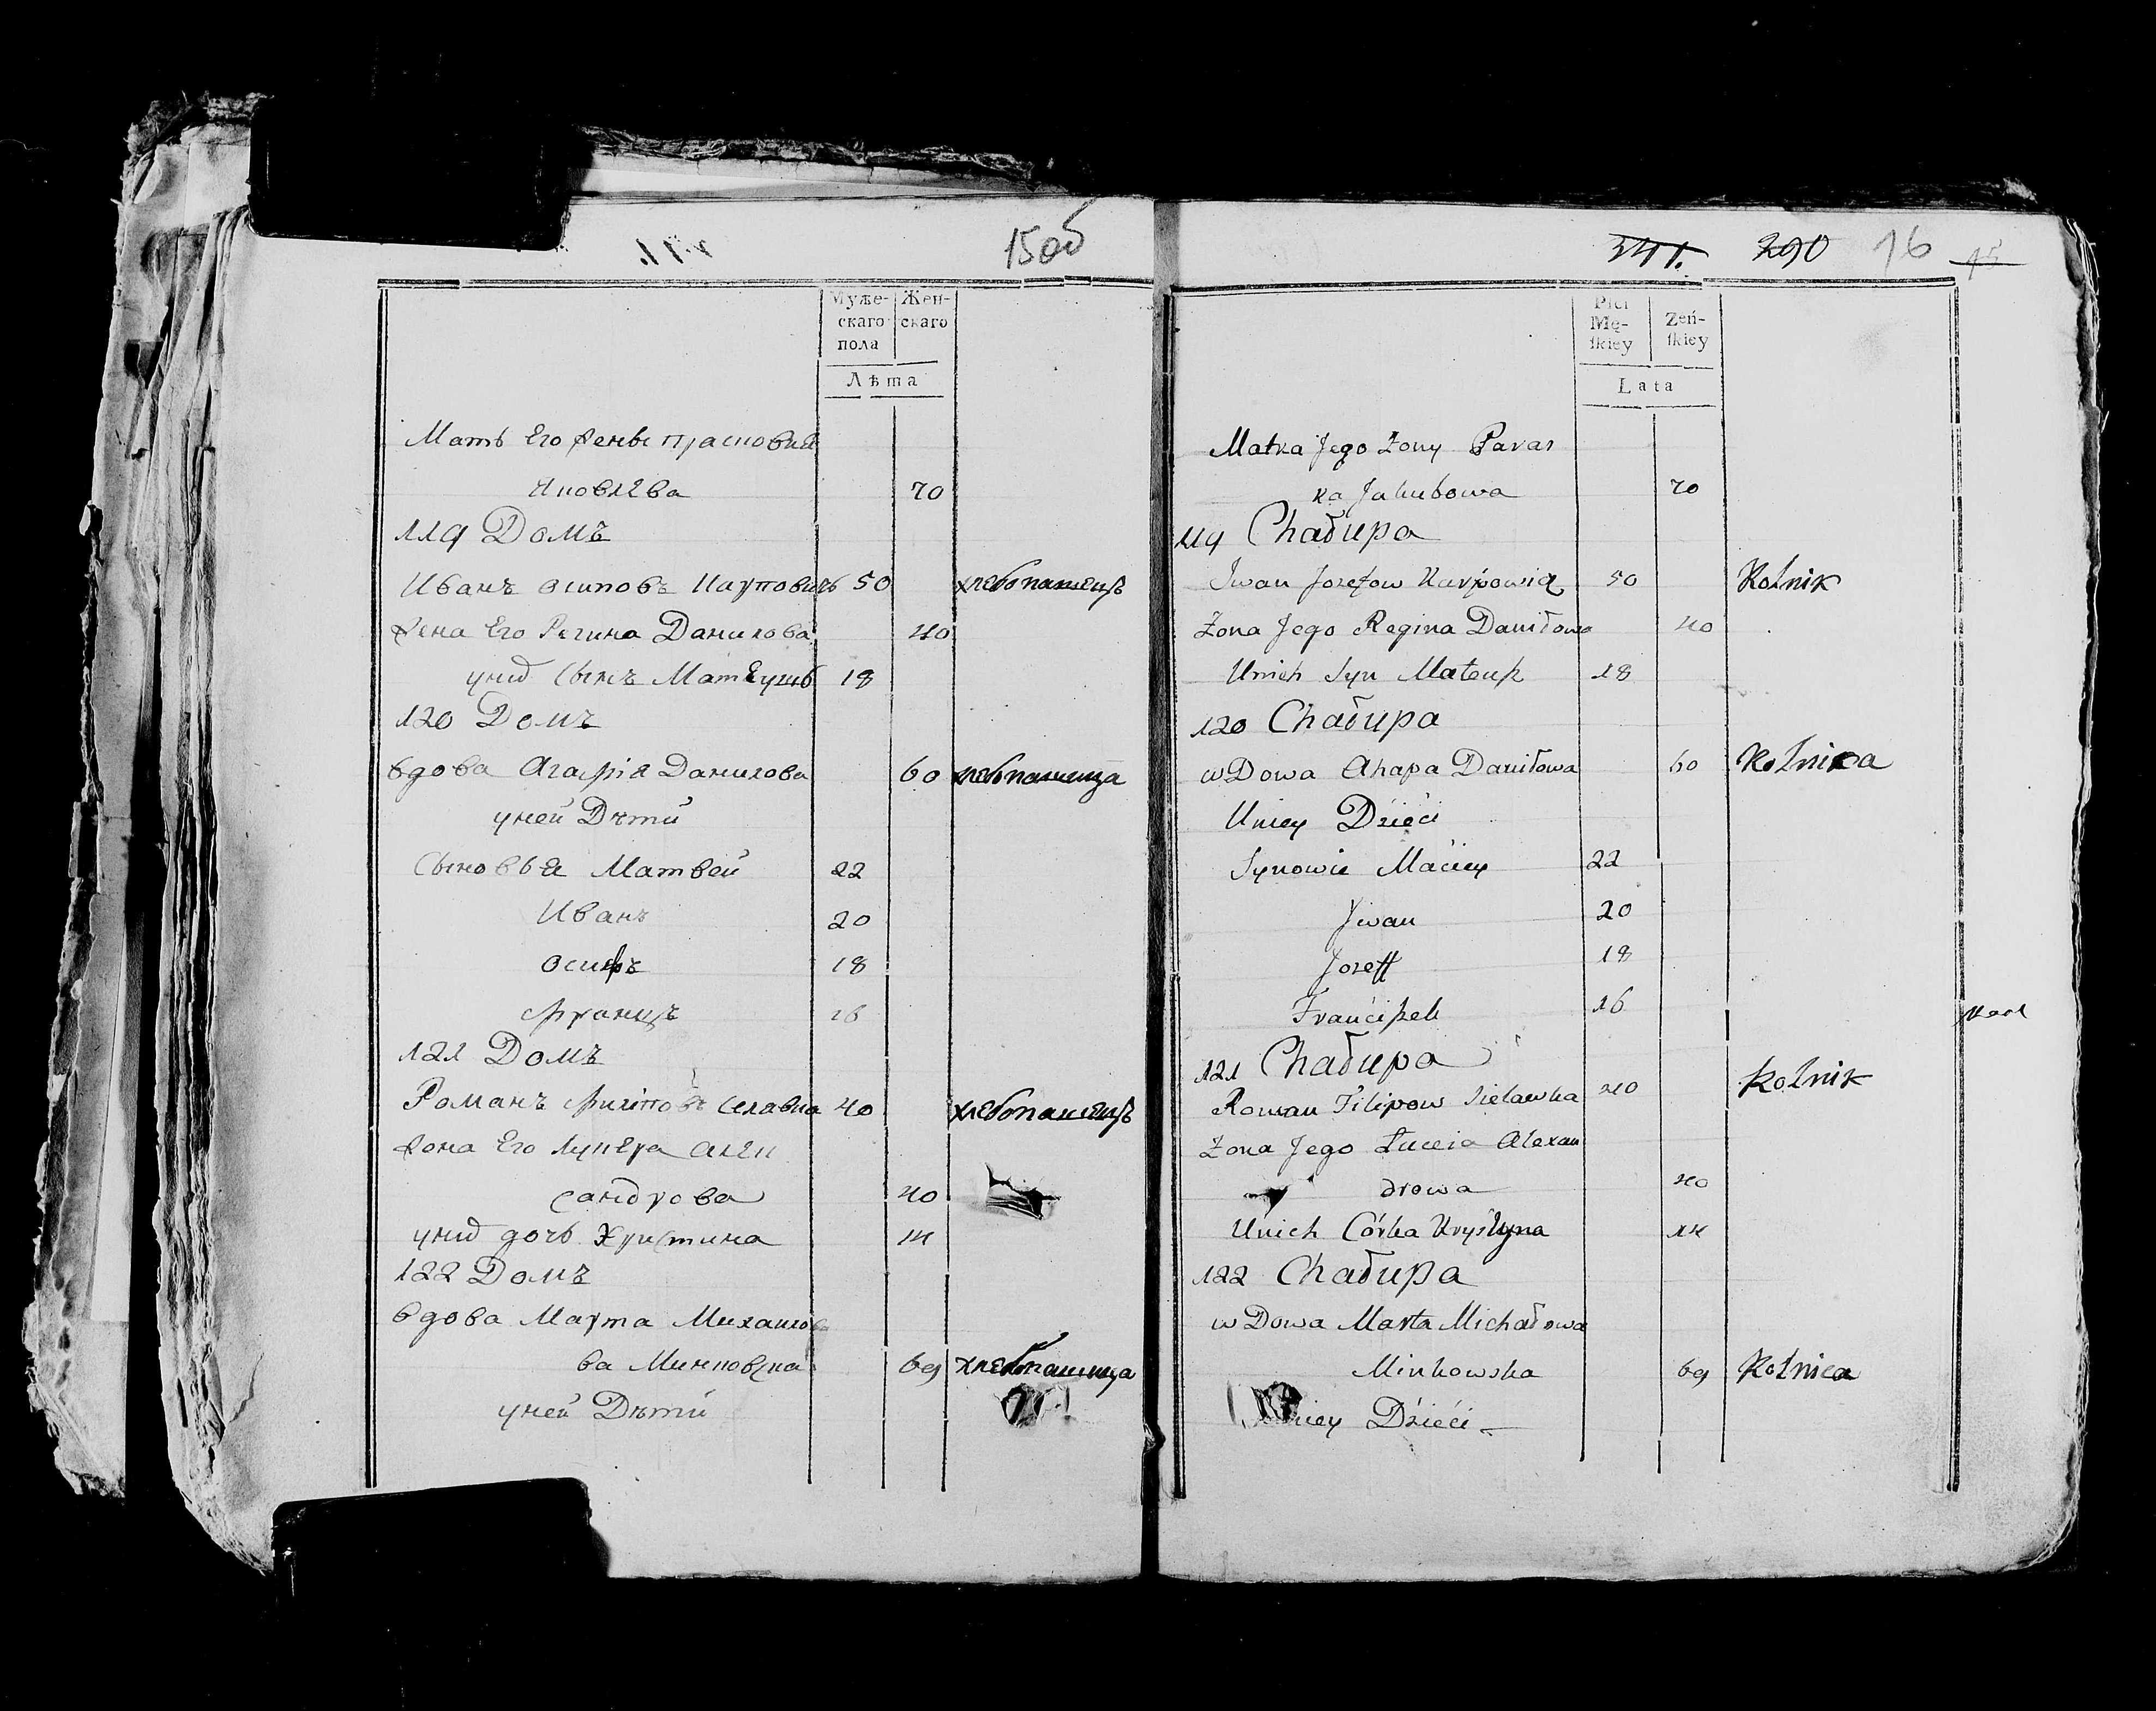 15об
Муже-
скаго
пола
Жен-
скаго
Лѣта
Мать Его жены прасковия
Яковлева 70
119 Домъ
Иванъ осиповъ Карповичъ 50 хлебопашецъ
Жена Его Регина Данилова 40
у нид Сынъ Матеушъ 18
120 Домъ
вдова Агафія Данилова 60 хлебопашица
у ней Дѣти
Сыновья Матвей 22
Иванъ 20
осифъ 18
францъ 16
121 Домъ
Романъ филиповъ Селавка 40 хлебопашецъ
Жона Его Луцеya алек
сандрова 40
у нид дочь Христина 14
122 Домъ
вдова Марта Михаило
ва Минковска 69 хлебопашица
у ней Дѣти
341. 290 16 15
Płci
Mę-
ſkiey
Żeń-
ſkiey
Lata
Matka Jego Zony Paras
ka Jakubowa 70
119 Chałupa
Jwan Jozefow Karpowicz 50 Rolnik
Zona Jego Regina Daniłowa 40
Unich Syn Mateuſz 18
120 Chałupa
wDowa Ahapa Daniłowa 60 Rolnica
Uniey Dzieci
Synowie Maciey 22
Jwan 20
Jozeff 18
Franciſzek 16
121 Chałupa
Roman Filipow Sielawka 40 Rolnik
Zona Jego Łuceia Alexan
drowa 40
Unich Córka Krystyna 14
122 Chałupa
wDowa Marta Michałowa
Minkowska 69 Rolnica
Uniey Dzieci